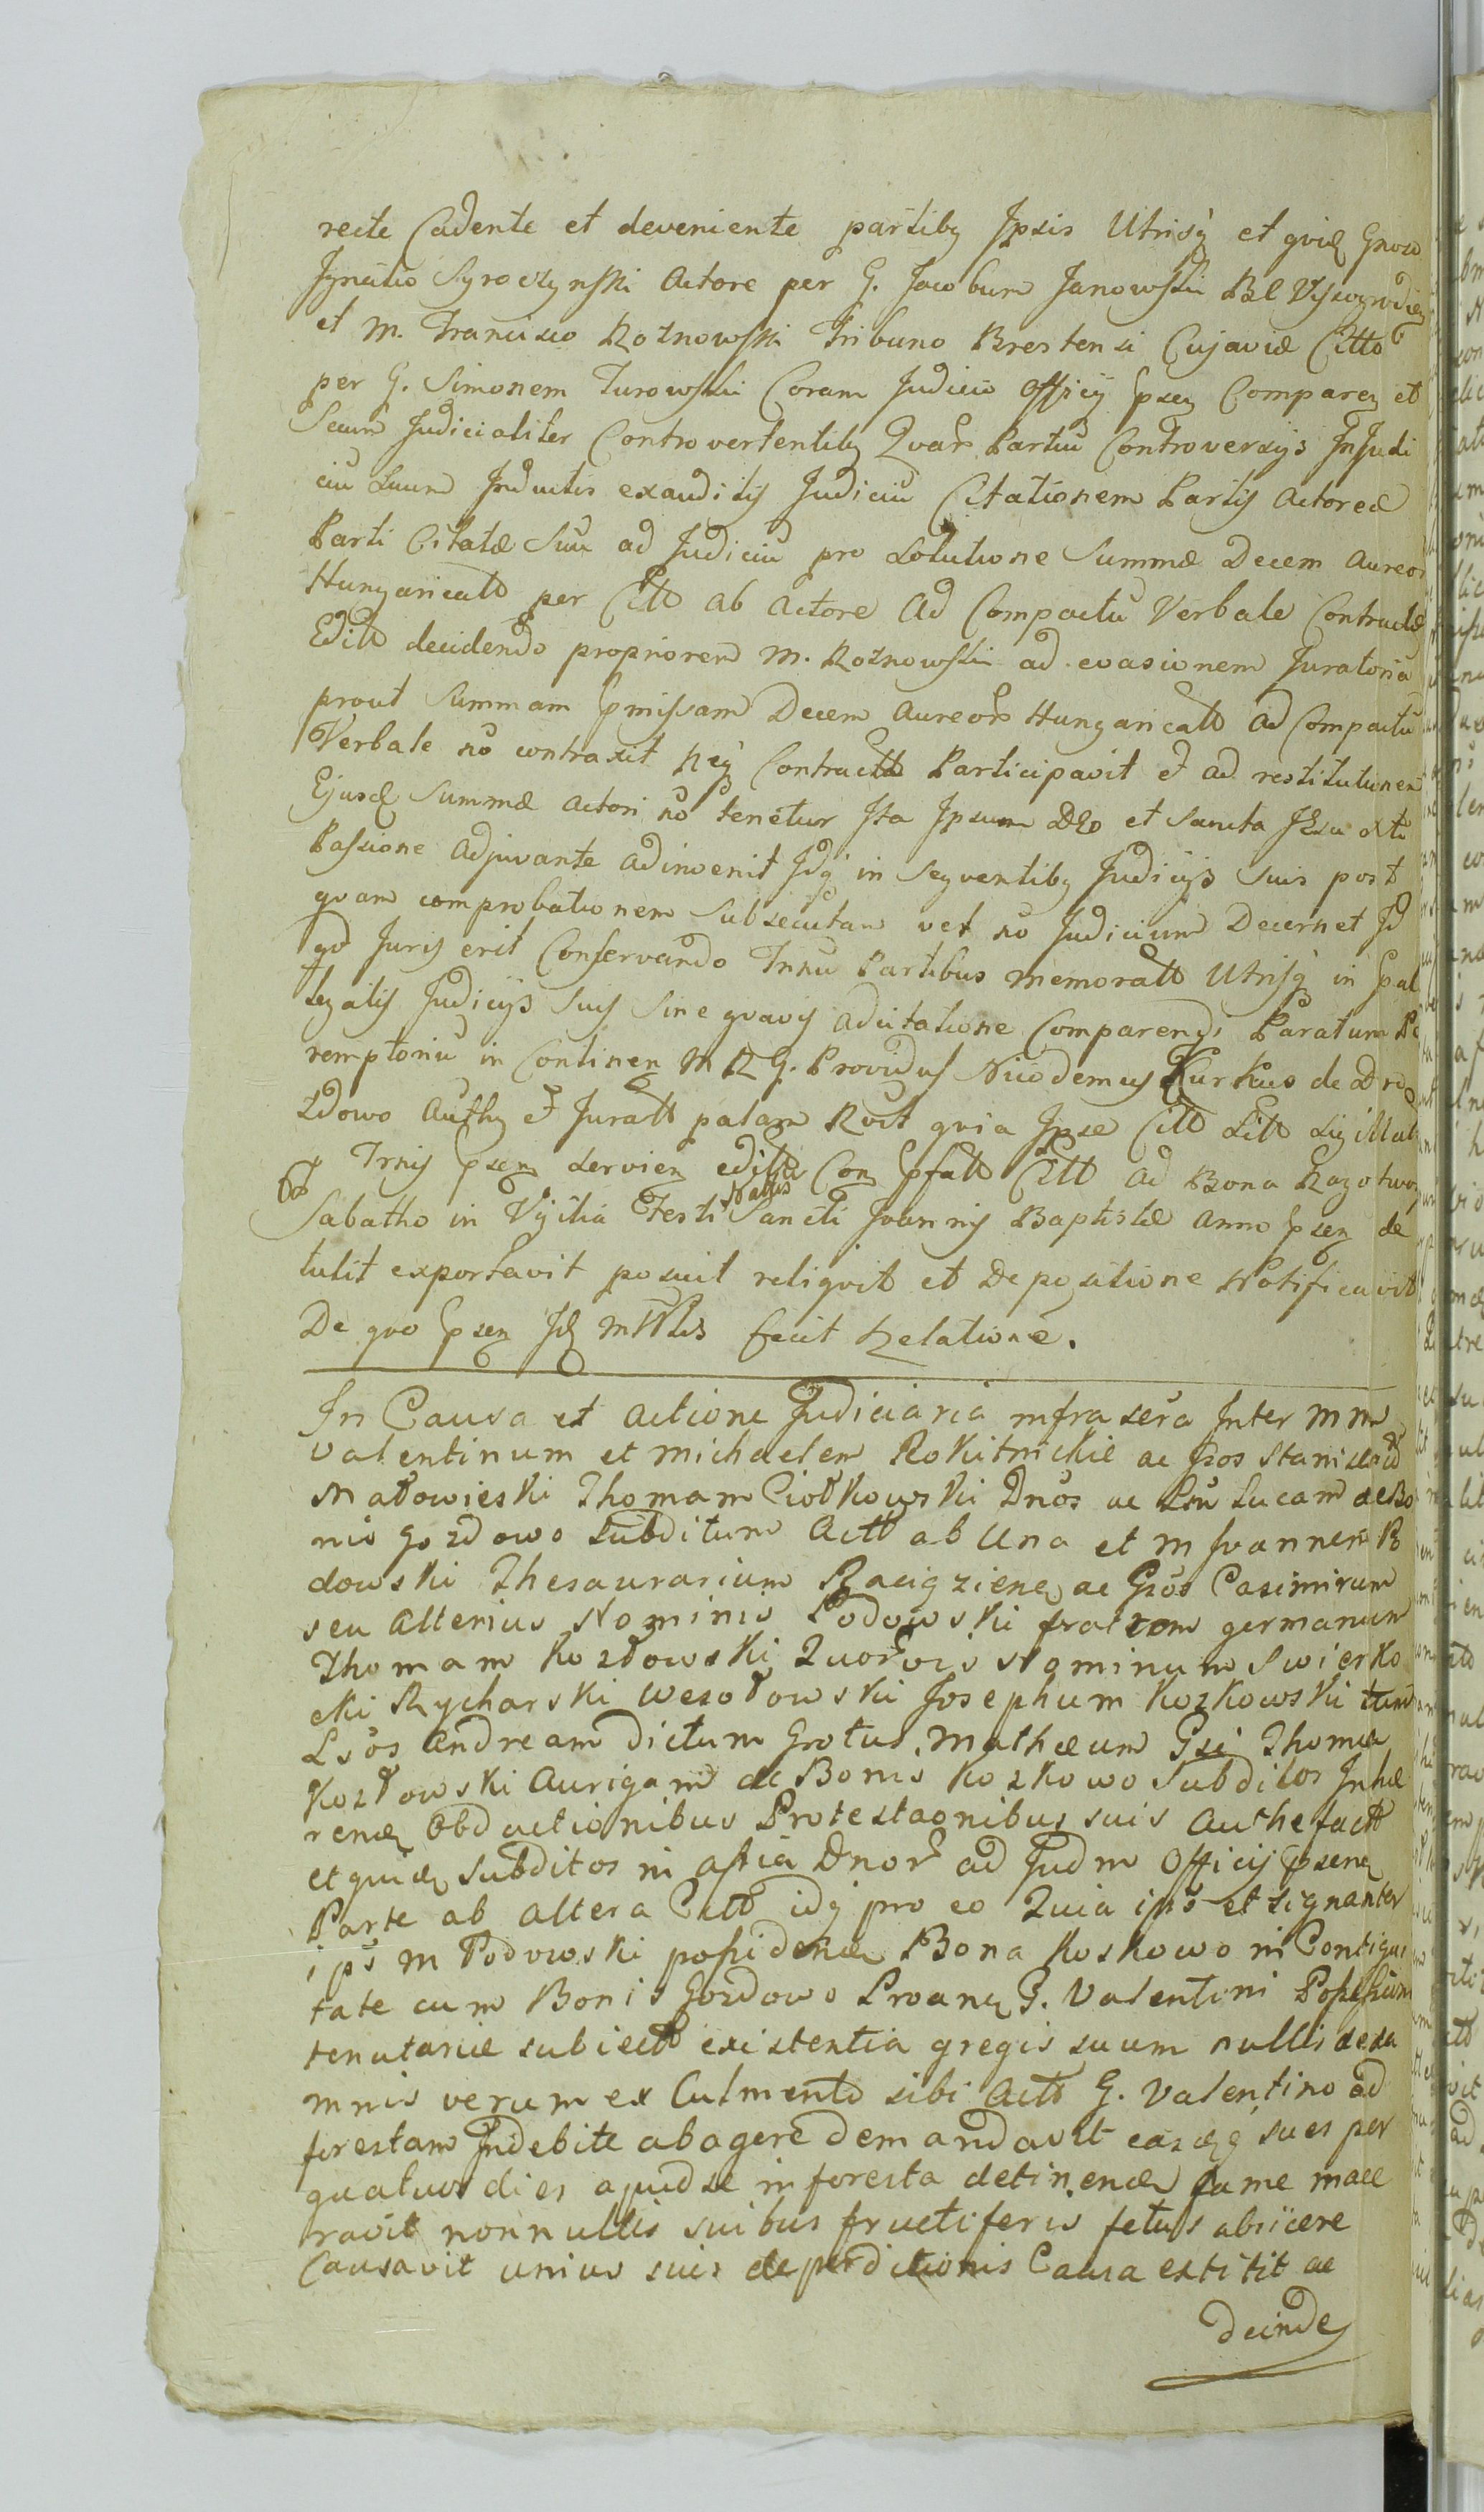 recte Cadente et deveniente partibq Ipsis Utrisq et qvidq Gnoso
Ignatio Syroczynski Actore per G. Jacobum Janowski BC Vyszogrodien
et M. Francisco Rożnowski Tribuno Brestensi Cujaviæ Citto
per G. Simonem Turowski Coram Judicio Officy Psen Comparen et
Secum Judicialiter Controvertentibq Qvar Partiu Controversys In Judi
ciu Suum Inductis exauditis Judiciu Citationem Partis Actoreæ
Parti Citatæ Suu ad Judiciu pro Solutione Summæ Decem Aureor
Hungaricatt per Citt ab Actore Ad Compactu Verbale Contractæ
Editt decidendo propriorem M. Rożnowski ad evasionem Juratoria
prout Summam Pmissam Decem Aureor Hungaricatt Ad Compactu
Verbale no contraxit neq Contractt Participavit et ad restitutionem
Ejusd Summæ Actori no tenetur Ita Ipsum Deo et Sancta Jesu Xti
Passione Adjuvante adinvenit Idq in Seqventibq Judicys Suis post
qvam comprobationem Subsecutam vel no Judicium Decernet Id
qd Juris erit Conservando Trnu Partibus memoratt Utrisq in Pal
legatis Judicys Suis Sine qvavis adcitatione Comparendi Paratum Pe
remptoriu in Continen M R G. Providus Nicodemus Kurkus de Dro
zdowo Authq et Juratt palam Rvit qvia Ipse Citt Litt Sigillat
Trnis Psen Servien editt Con Pfatt Citt ad Bona Ragotwor
Sabatho in Vigilia Festi Nattis Sancti Joannis Baptistæ Anno Psen de
tulit exportavit posuit reliqvit et Depositione Notificavit
De qvo Psen Id Mttlis fecit Relatione.
In Causa et actione Judiciaria infrascra Inter MM
Valentinum et Michaelem Rokitnickie ac Gsos Stanislaum
Małowieski Thomam Ciołkowski Dnos ac Lsu Lucam de Bo
nis Gozdowo Subditum Actt ab Una et M Joannem P
dowski Thesaurarium Raciązienen ac Gsos Casimirum
seu Alterius Nominis Podowski fratrem germanum
Thomam Kozłowski Quorvis Nominum Swierko
cki Rycharski Wesołowski Josephum Kozkowski tum
Lsos Andream dictum Grotus, Mathæum Gsi Thomæ
Kozłowski Aurigam de Bonis Kozkowo Subditos Inhæ
renen Obductionibus Protestaonibus suis Authe factt
et quidq Subditos in assia Dnor ad Judm Officy Psens
Parte ab altera Citt idq pro eo Quia ips et signanter
ips M Podowski possidenen Bona Koskowo in Contigui
tate cum Bonis Gozdowo Proanen G. Valentini Possessioni
tenutariæ subiectt existentia gregis suum nulli de da
mnis verum ex Culmento sibi Actt G. Valentino ad
forestam Indebite abagere demandavit easdq sues per
quatuor dies apud se in foresta detinenen fame mace
ravit nonnullis suibus fructiferis fetus abiicere
Causavit unius suis deperditionis Causa extitit ac
deinde